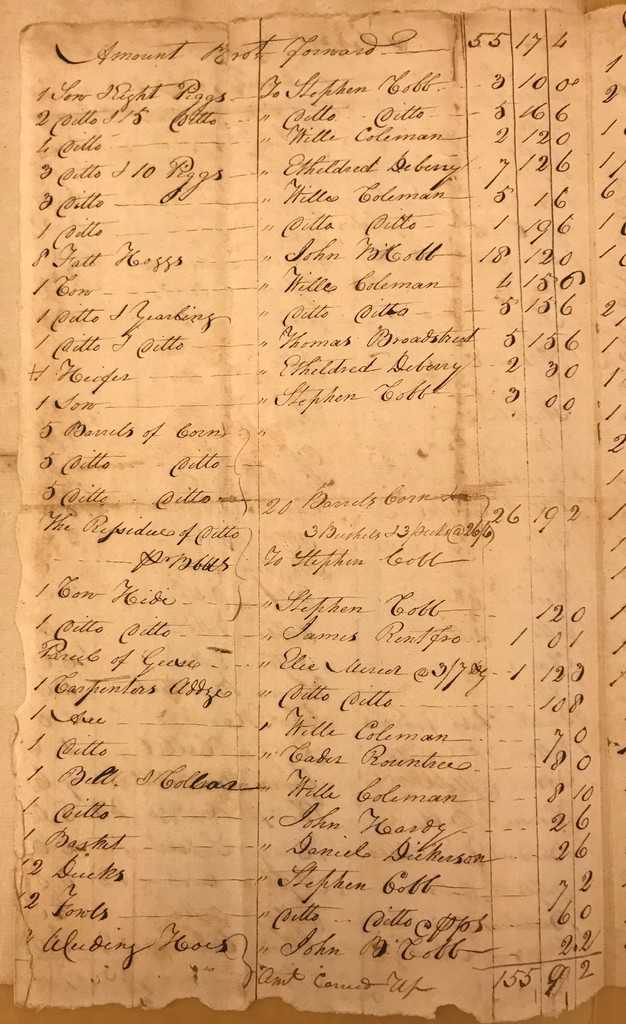 Amount Brot forward 55 17 4
1 Sow & Eight Piggs To Stephen Cobb 3 10 0
2 Ditto & 15 Ditto " Ditto Ditto 5 16 6
4 Ditto " Wille Coleman 2 12 0
3 Ditto & 10 Piggs " Etheldred Deberry 7 12 6
3 Ditto " Wille Coleman 5 1 6
1 Ditto " Ditto Ditto 1 19 6
8 Fatt Hoggs " John B Cobb 18 12 0
1 Cow " Wille Coleman 4 15 6
1 Ditto & Yearling " Ditto Ditto 5 15 6
1 Ditto & Ditto " Thomas Broadstreet 5 15 6
1 Heifer " Etheldred Deberry 2 3 0
1 Sow " Stephen Cobb 3 0 0
5 Barrels of Corn "
5 Ditto Ditto
5 Ditto Ditto 20 Barrels Corn
The Ressidue of Ditto 3 Bushels & 3 Pecks @ 26/6 26 19 2
To Stephen Cobb
1 Cow Hide " Stephen Cobb 12 0
1 Ditto Ditto " James Rentfro 1 0 1
Parcel of Geese " Elie Mercer @ 3/7 1 12 3
1 Carpenters Addze " Ditto Ditto 10 8
1 Axe " Wille Coleman 7 0
1 Ditto " Cader Rountree 8 0
1 Bell & Collar " Wille Coleman 8 10
1 Ditto " John Hardy 2 6
1 Basket " Daniel Dickerson 2 6
12 Ducks " Stephen Cobb 7 2
12 Fowls " Ditto Ditto 6 0
Weeding Hoes " John B Cobb 2 2
Amt Carried Up 155 9 2